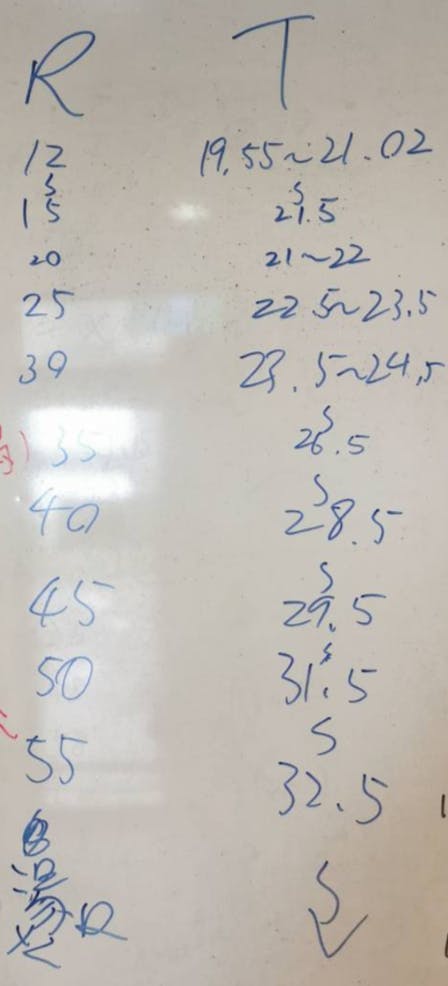 R T
12 19.55~21.02
15 21.5
20 21~22
25 22.5~23.5
30 23.5~24.5
35 26.5
40 28.5
45 29.5
50 31.5
55 32.5
R